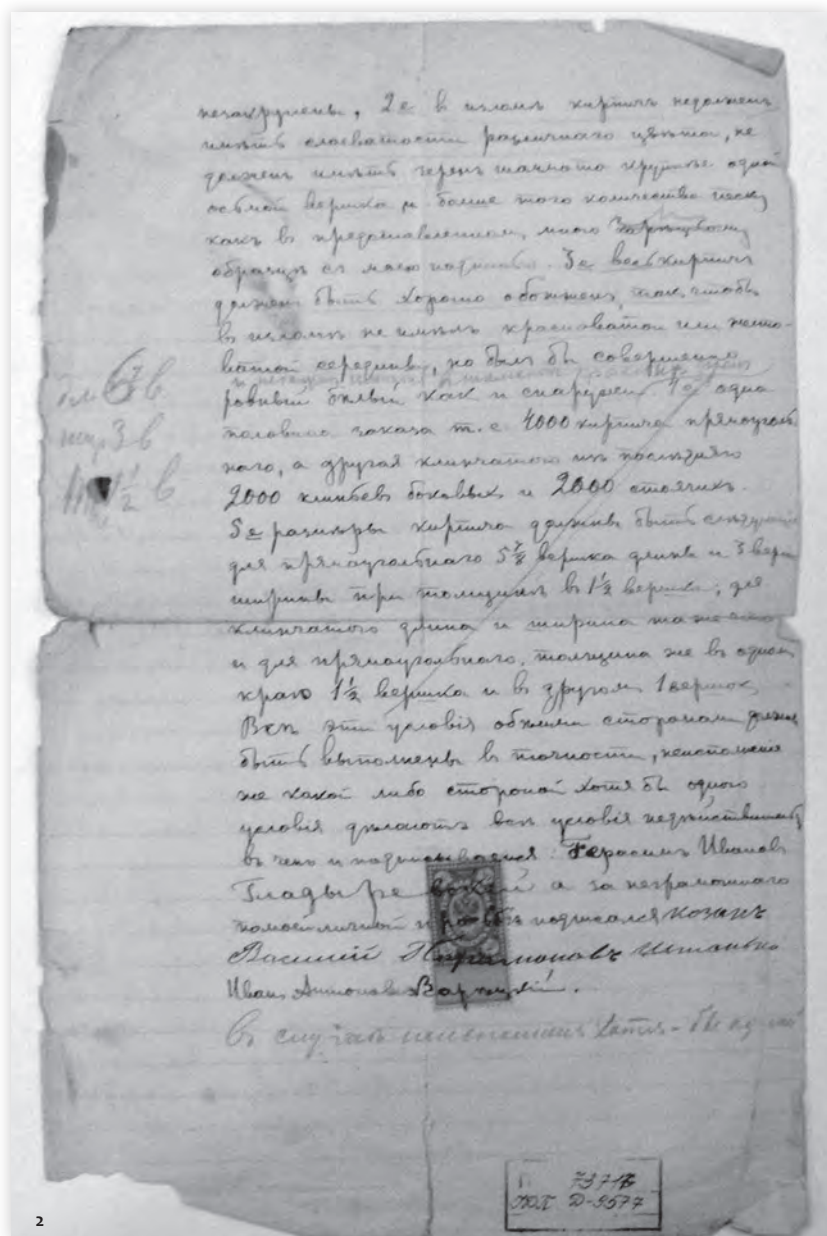 незакругленъ. 2е в изломѣ кирпичъ недолженъ
имѣть слоеватости различнаго цвѣта, не
долженъ имѣть зеренъ крупнѣе одной
осьмой вершка и больше того количество песку
какъ в предоставленномъ, мною
образцѣ съ моею подписью. 3е весь кирпичъ
долженъ быть хорошо обожженъ, такъ чтобы
в изломѣ не имѣлъ красноватой или желто-
ватой середины, но былъ бы совершенно
ровный бѣлый как и снаружи. 4е одна
половина заказа т. е 4000 кирпича прямоуголь
наго, а другая клинчатого изъ послѣдняго
2000 клиньевъ боковыхъ и 2000 стоячихъ.
5е размѣры кирпича должны быть
для прямоугольнаго 5 7/8 вершка длины и 3 верш
ширины при толщинѣ в 1½ вершка; для
клинчатого длина и ширина та же что
и для прямоугольнаго, толщина же въ одномъ
краю 1½ вершка и в другомъ 1 вершокъ.
Всѣ эти условія обѣими сторонами должны
быть выполнены в точности, неисполненія
же какой либо стороной хотя бы одного
условія дѣлаютъ всѣ условія недѣйствительн
въ чемъ и подписываемся: Герасимъ Ивановъ
а за неграмотнаго
личной подписался козакъ
Василий
Иванъ Антоновъ
в случаѣ хотя-бы одной
6 7/8 в
шир 3 в
1½ в
П 73716
ФОЛ Д-9577
2